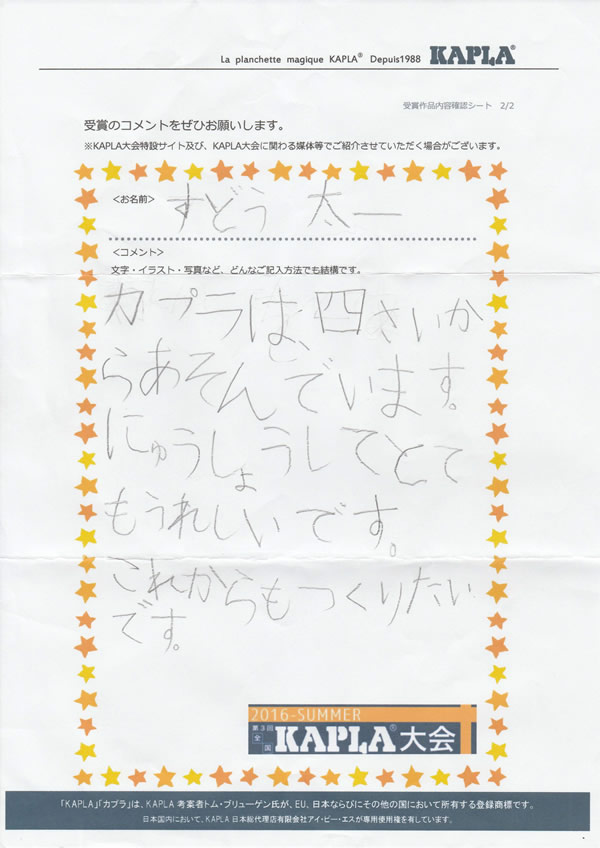 La planchette magique KAPLA® Depuis1988 KAPLA®
受賞作品内容確認シート 2/2
受賞のコメントをぜひお願いします。
※KAPLA大会特設サイト及び、KAPLA大会に関わる媒体等でご紹介させていただく場合がございます。
<お名前> すどう 太一
<コメント>
文字・イラスト・写真など、どんなご記入方法でも結構です。
カプラは、四さいか
らあそんでいます。
にゅうしょうしてとて
もうれしいです。
これからもつくりたい
です。
2016-SUMMER
第3回
全国
KAPLA®大会
「KAPLA」「カプラ」は、KAPLA 考案者トム・ブリューゲン氏が、EU、日本ならびにその他の国において所有する登録商標です。
日本国内において、KAPLA 日本総代理店有限会社アイ・ピー・エスが専用使用権を有しています。